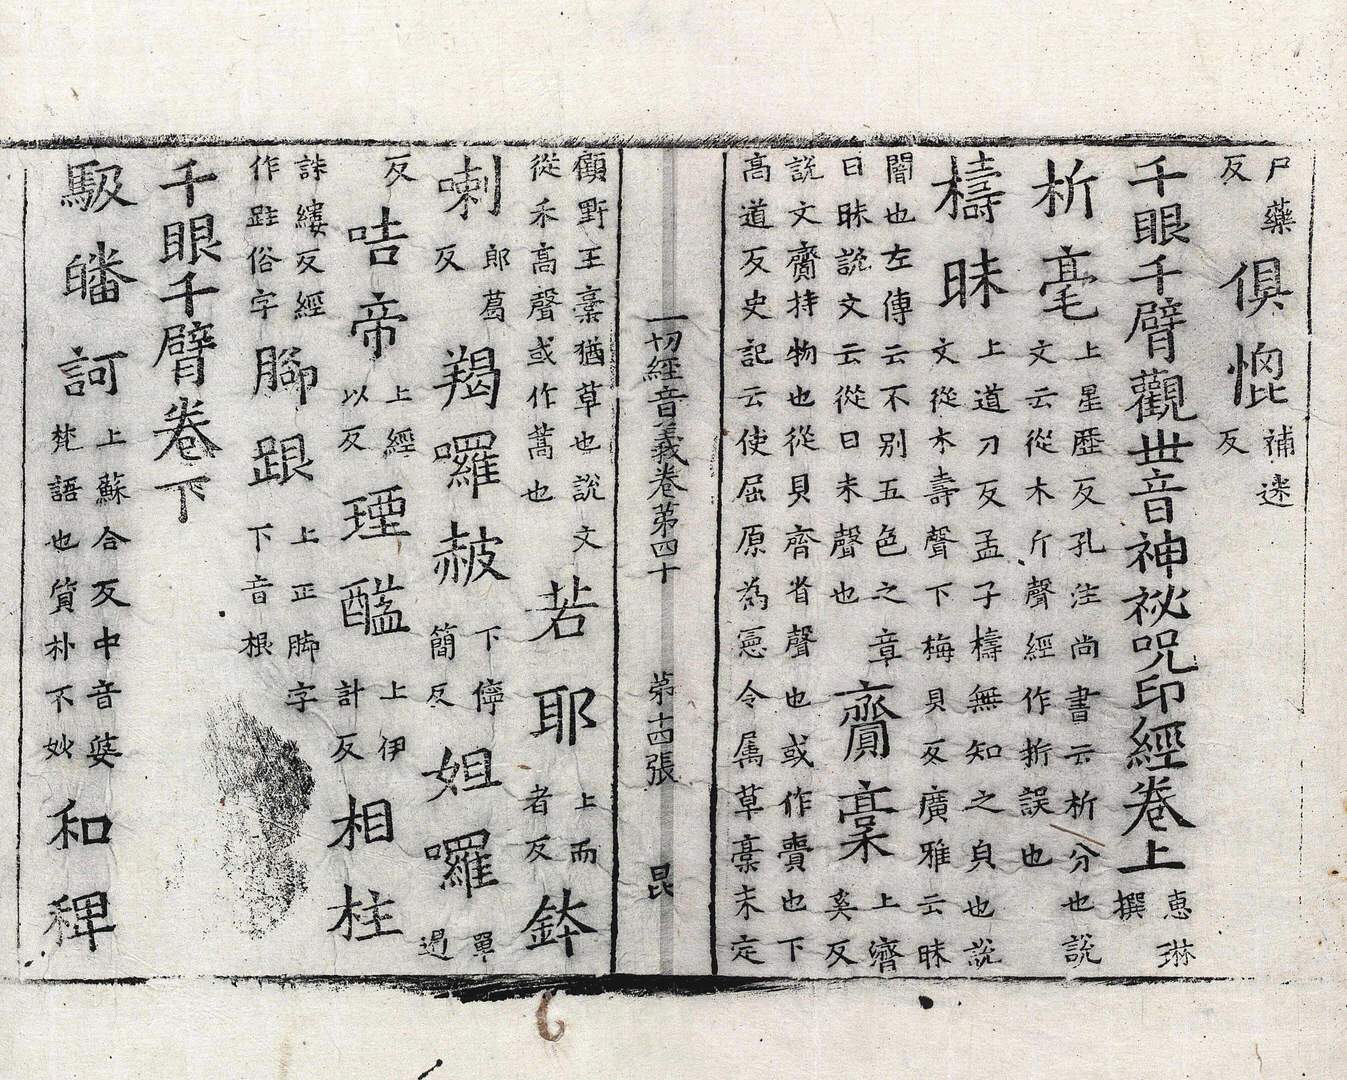 尸藥反俱 補迷反
千眼千臂觀世音神祕咒印經卷上 惠琳撰
析毫 上星歷反孔注尚書云析分也說文云從木斤聲經作折誤也
檮昧 上道刀反孟子檮無知之皃也說文從木壽聲下梅貝反廣雅云昧
闇也左傳云不別五色之章日昧說文云從日未聲也 齎稾 上濟奚反
說文齎持物也從貝齊省聲也或作賷也下
高道反史記云使屈原為憲令属草稾未定
一切經音義卷第四十 第十四張 昆
顧野王稾猶草也說文從禾高聲或作蒿也 若耶 上而者反 鉢
喇 郎葛反 羯囉赧 下儜簡反 妲囉 單遏
反 咭帝 上經以反 醯 上伊計反 相柱
誅縷反經作跓俗字 腳跟 上正脚字下音根
千眼千臂卷下
馺皤訶 上蘇合反中音婆梵語也質朴不妙 和稗